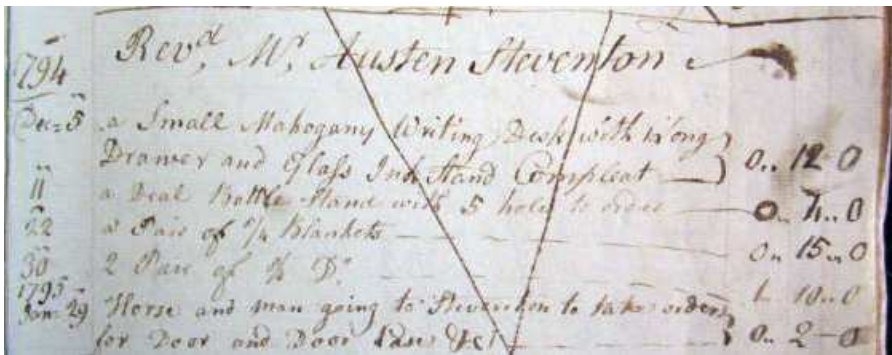 Revd. Mr. Austen Steventon
1794
Decr 5 a Small Mahogany Writing Desk with 1 Long
Drawer and Glass Ink Stand Compleat 0.. 12-0
11 a Deal Bottle Stand with 5 holes to order 0.. 4..0
22 a Pair of /4 Blankets 0.. 15..0
30 2 Pair of Do. 1.. 10..0
1795
Jan: 29 Horse and man going to Steventon to take orders
for Door and Door Case &c 0.. 2-0